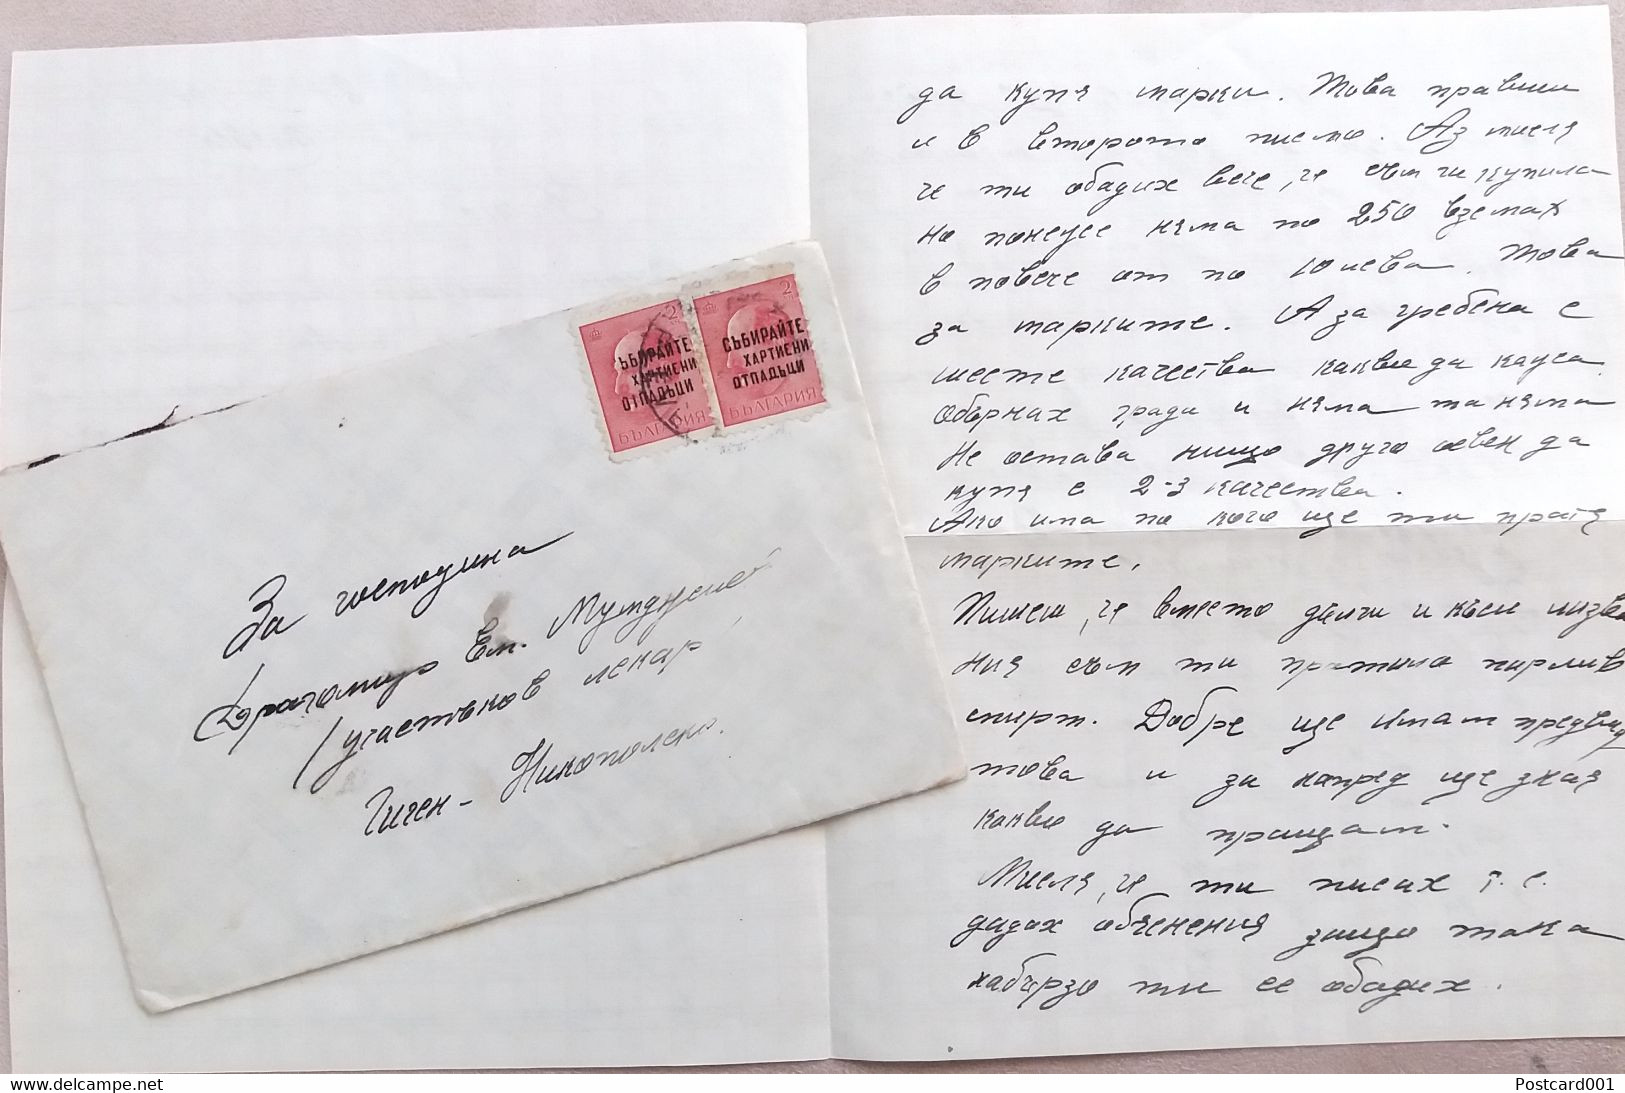 да купя марки. Това правиш
и в второто писмо. Аз мисля
че ти обадих вече, че съм ги купила
но понеже няма по 250 вземах
в повече от по 10 лева. Това
за марките. А за гребена с
шесте качества какво да кажа
обърнах града и няма та няма
Не остава нищо друго освен да
купя с 2-3 качества.
Ако има по кого ще ти пратя
марките.
Пишеш, че вместо дълги и къси
ния съм ти пратила
спирт. Добре ще имам предвид
това и за напред ще зная
какво да пращам.
Мисля, че ти писах т. е.
дадох обяснения защо така
набързо ти се обадих.
СЪБИРАЙТЕ
ХАРТИЕНИ
ОТПАДЪЦИ
БЪЛГАРИЯ
2
СЪБИРАЙТЕ
ХАРТИЕНИ
ОТПАДЪЦИ
БЪЛГАРИЯ
2
За господина
Драгомир Ем.
/участъков лекар/
Гиген - Никополско.
delcampe.net
Postcard001